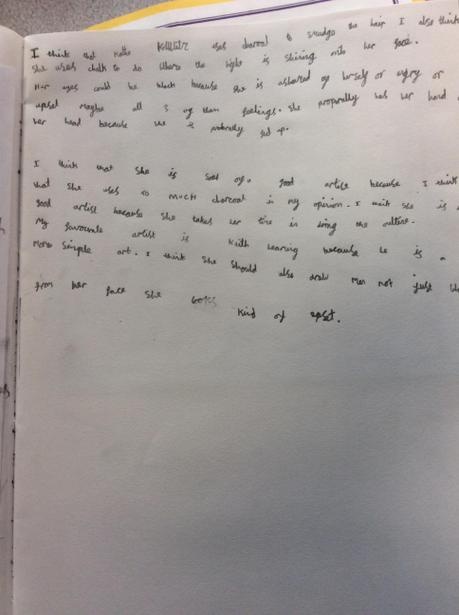 I think that Kathe Kollwitz uses charcoal to smudge the hair I also think
she uses chalk to do where the light is shining onto her face.
Her eyes could be black because she is ashamed of herself or angry or
upset maybe all 3 of them feelings. she properally has her hand
her head because she is probrally fed up.
I think that she is sort of a good artist because I think
that she uses so much charcoal in my opinion. I she is a
good artist because she takes her time in doing the outline.
My favourate artist is Keith hearing because he is a
More simple art. I think she should also draw Men not just
from her face she looks kind of upset.